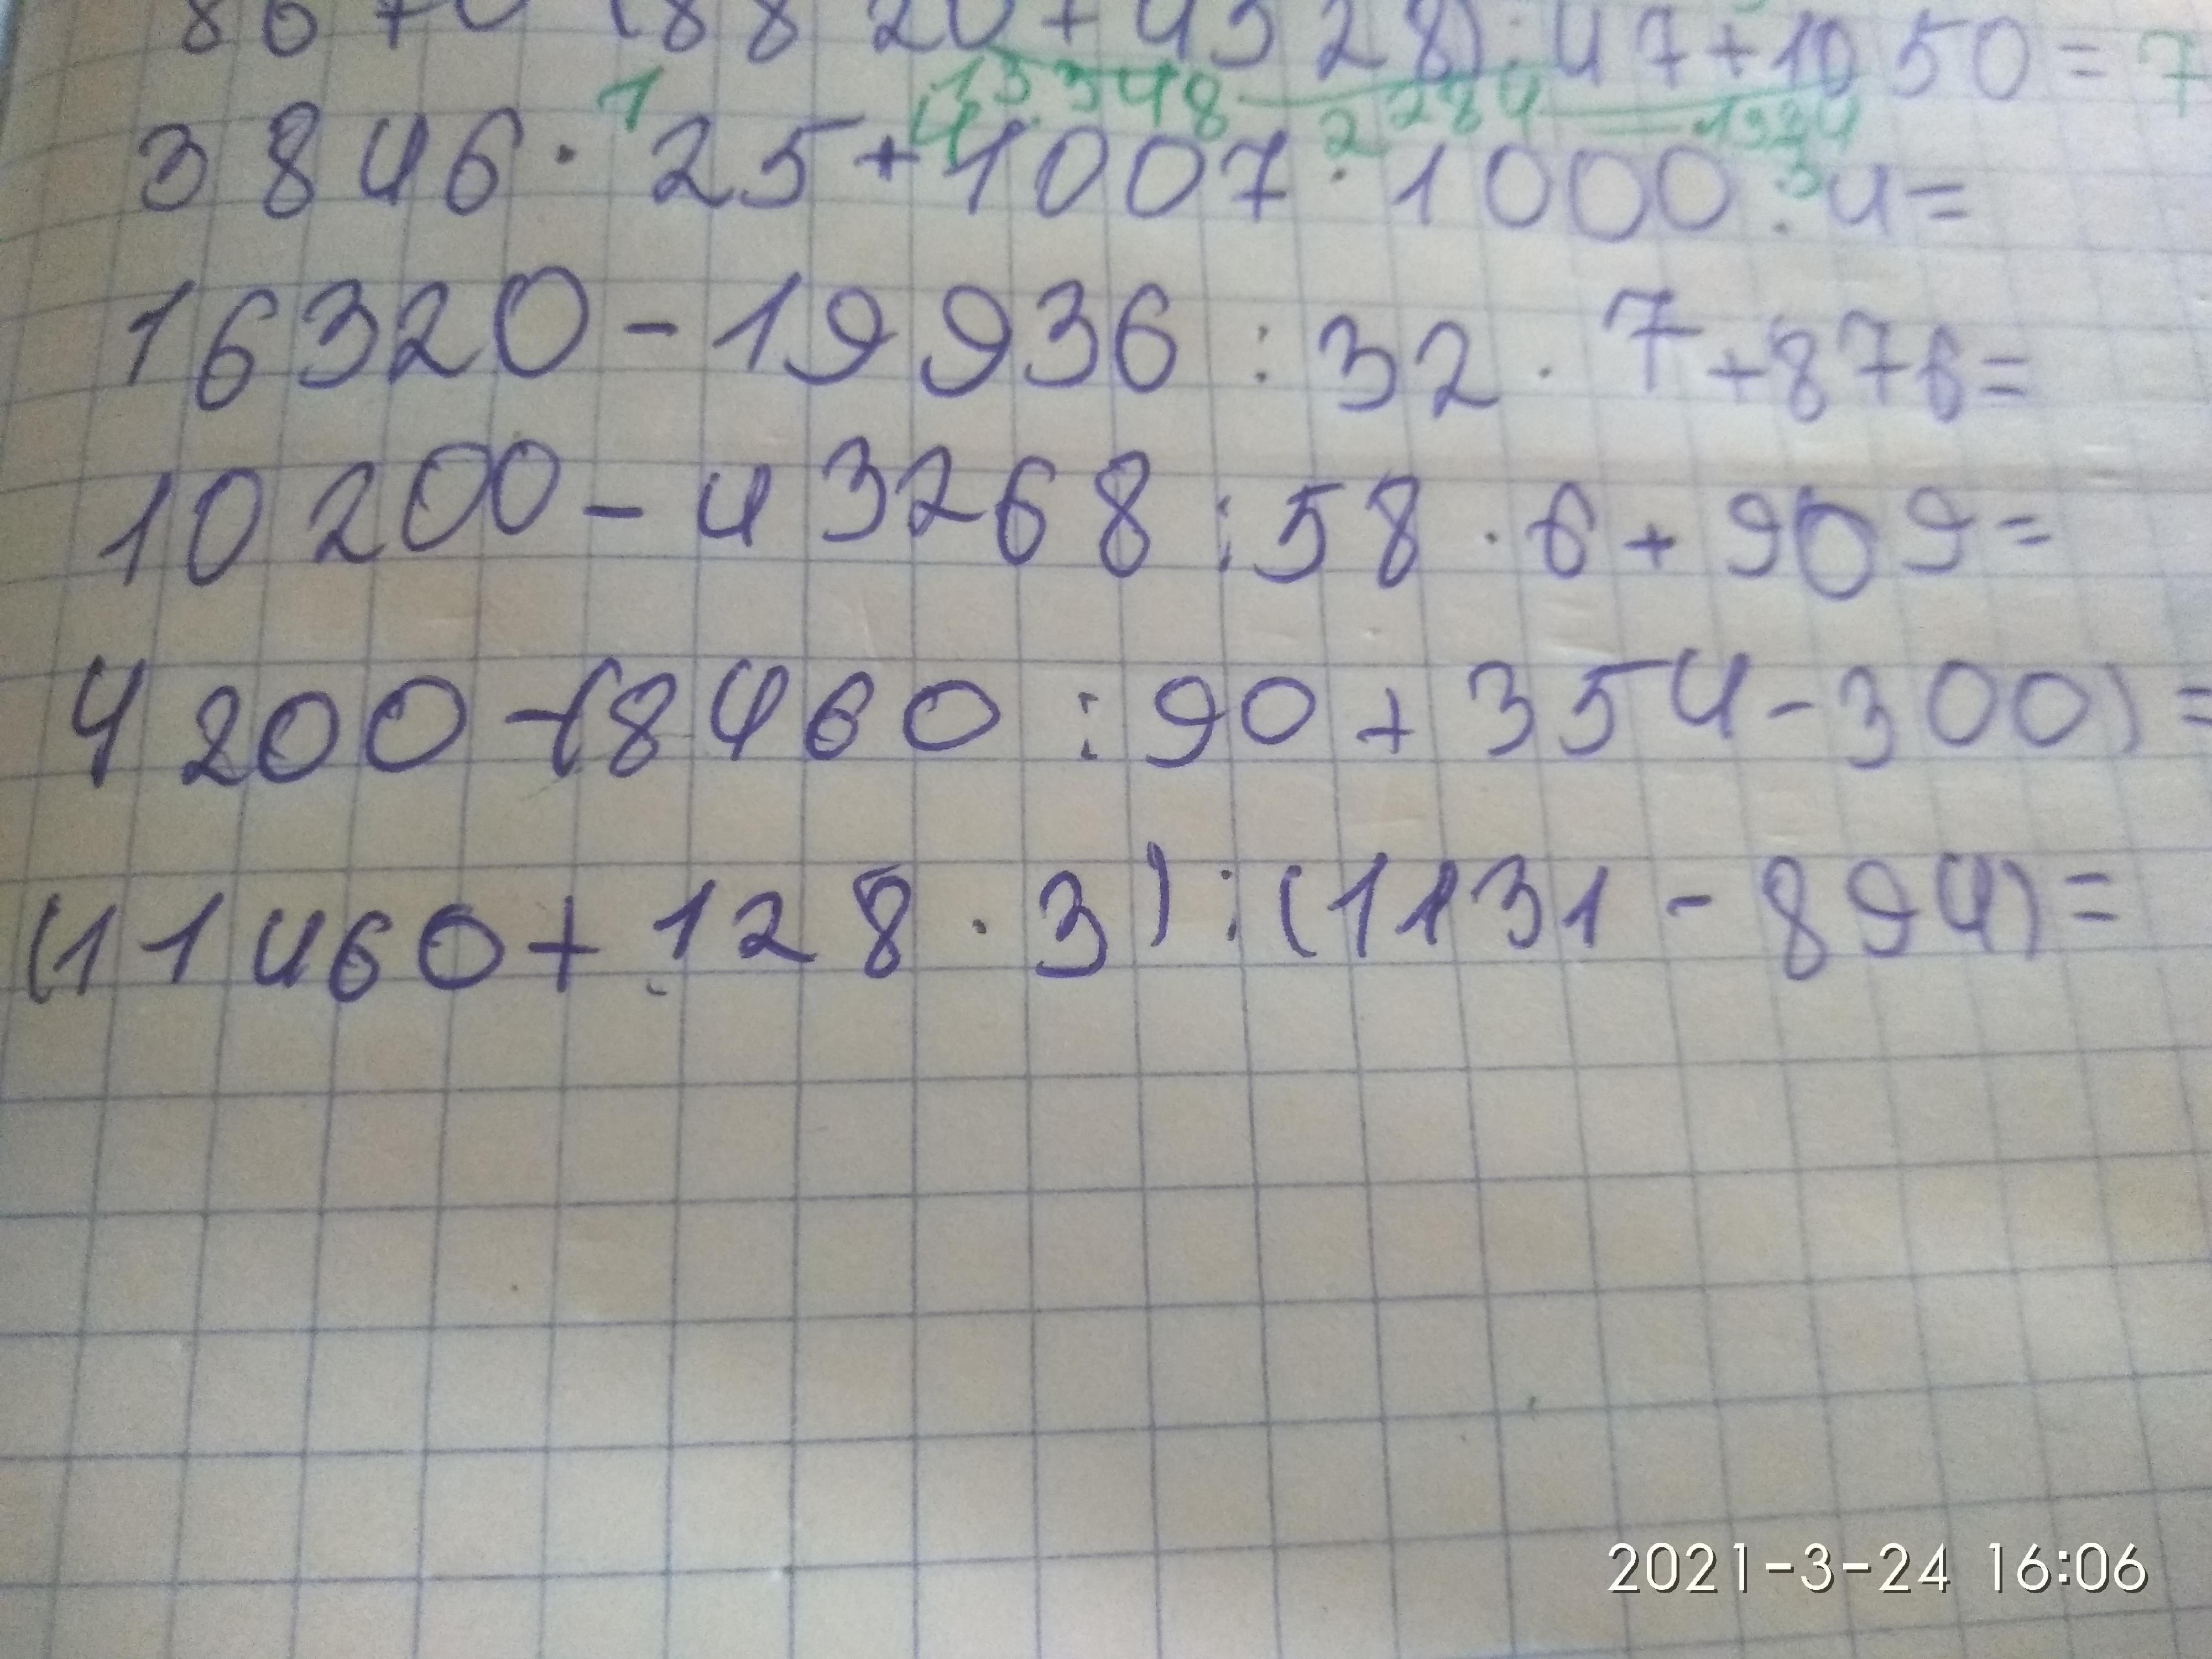 8670 (8820+4528):47+1050=7
13348 284 1334
1 4 2 3
3846·25+1007·1000:4=
16320-19936:32·7+876=
10200-43268:58·6+909=
4200-(8460:90+354-300)=
(11460+128·3):(1131-894)=
2021-3-24 16:06